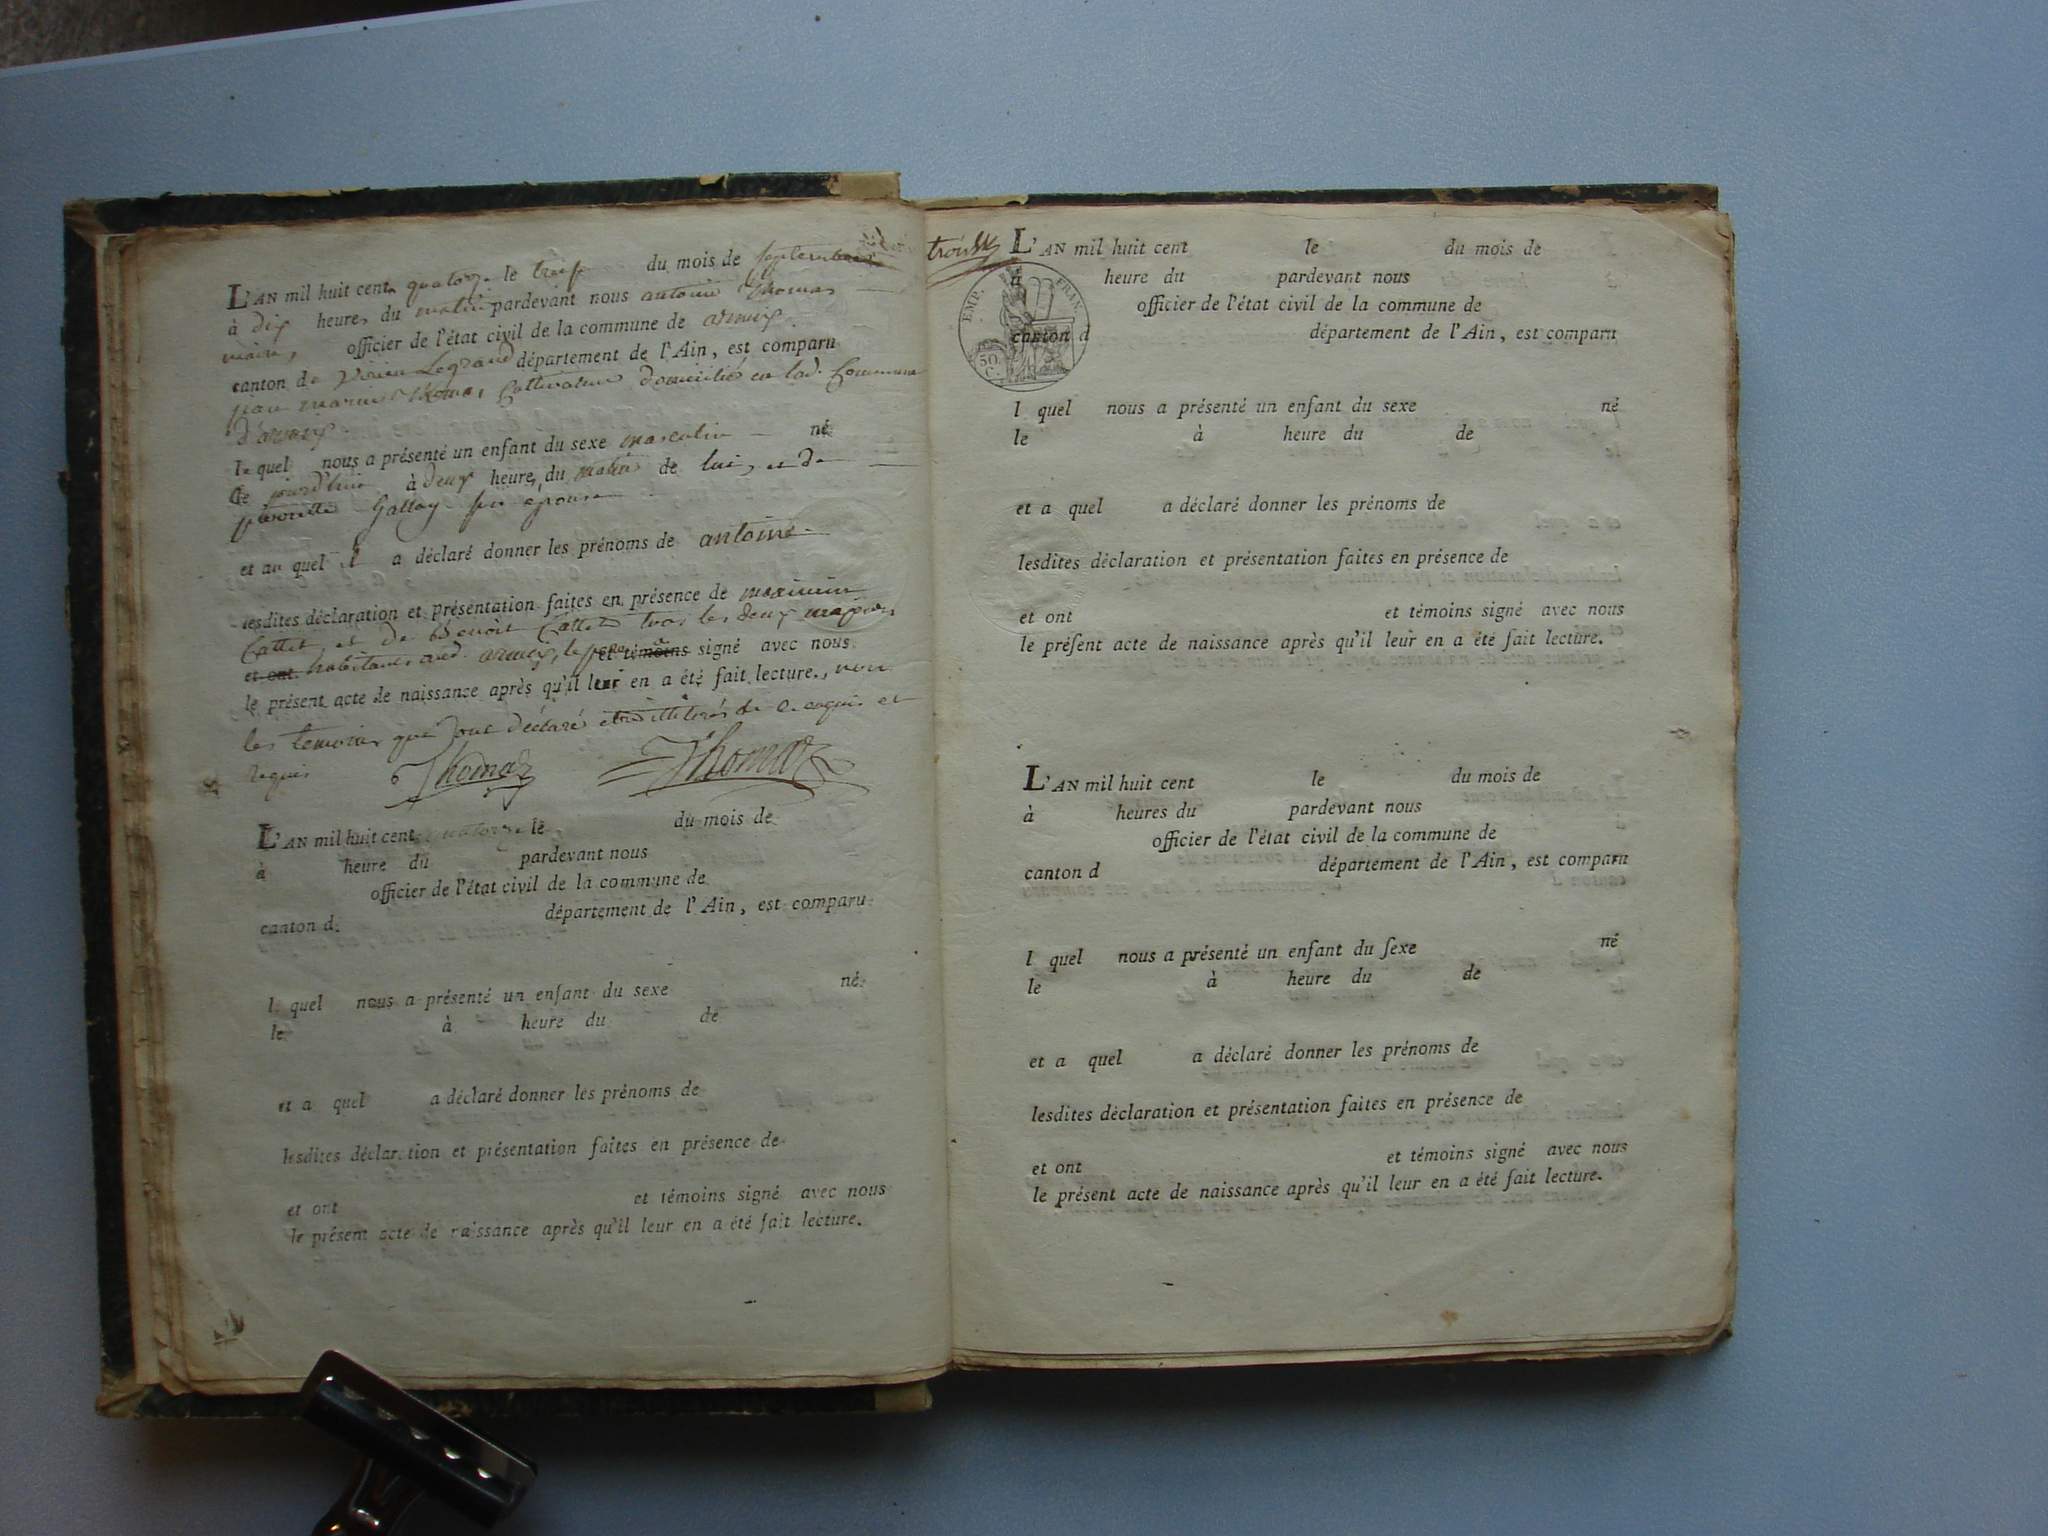 L'AN mil huit cent quatorze le treize du mois de septembre
à dix heures du matin pardevant nous antoine Thomas
maire, officier de l'état civil de la commune de
canton de Virieu Legrand département de l'Ain, est comparu
jean marie Thomas Cultivateur domicilié en lad. Commune
le quel nous a présenté un enfant du sexe masculin né
Ce jourd'hui à deux heures du matin de lui, et de
pierrette Gallay son épouse
et au quel il a déclaré donner les prénoms de antoine
lesdites déclaration et présentation faites en présence de maximin
Cattet et de Benoit Cattet tous les deux majeurs
et ont habitants aud. le père et témoins a signé avec nous
le présent acte de naissance après qu'il leur en a été fait lecture, non
les temoins qui ont déclaré illitérés de ce enquis et
requis Thomas Thomas
L'AN mil huit cent quatorze le du mois de
à heure du pardevant nous
officier de l'état civil de la commune de
canton d département de l'Ain, est comparu
l quel nous a présenté un enfant du sexe né
le à heure du de
et a quel a déclaré donner les prénoms de
lesdites déclaration et présentation faites en présence de
et ont et témoins signé avec nous
le présent acte de naissance après qu'il leur en a été fait lecture.
L'AN mil huit cent le du mois de
à heure du pardevant nous
EMP. FRAN.
officier de l'état civil de la commune de
canton d département de l'Ain, est comparu
50 C.
l quel nous a présenté un enfant du sexe né
le à heure du de
et a quel a déclaré donner les prénoms de
lesdites déclaration et présentation faites en présence de
et ont et témoins signé avec nous
le préſent acte de naissance après qu'il leur en a été fait lecture.
L'AN mil huit cent le du mois de
à heures du pardevant nous
officier de l'état civil de la commune de
canton d département de l'Ain, est comparu
l quel nous a présenté un enfant du ſexe né
le à heure du de
et a quel a déclaré donner les prénoms de
lesdites déclaration et présentation faites en présence de
et ont et témoins signé avec nous
le présent acte de naissance après qu'il leur en a été fait lecture.